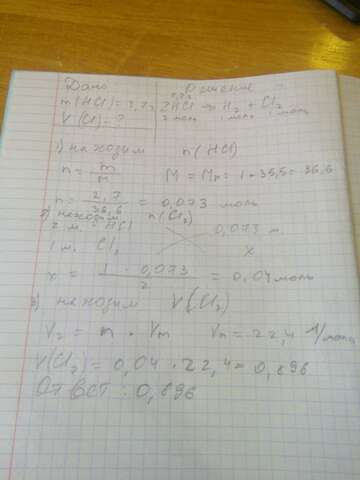 Дано Решение
m(HCl)=2,7г 2HCl → H2 + Cl2
V(Cl)=? 2 моль 1 моль 1 моль
1) находим n(HCl)
n = m/M M = Mr = 1+35,5=36,6
n = 2,7/36,6 = 0,073 моль
2) находим n(Cl2)
2 м. HCl 0,073 м
1 м. Cl2 x
x = 1 · 0,073/2 = 0,04 моль
3) находим V(Cl2)
V2 = n · Vm Vm = 22,4 л/моль
V(Cl2) = 0,04 · 22,4 = 0,896
Ответ: 0,896